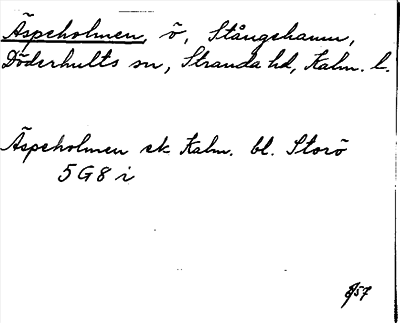 Äspeholmen, ö, Stångehamn,
Döderhults sn, Stranda hd, Kalm. l.
Äspeholmen ek Kalm. bl. Storö
5 G 8 i